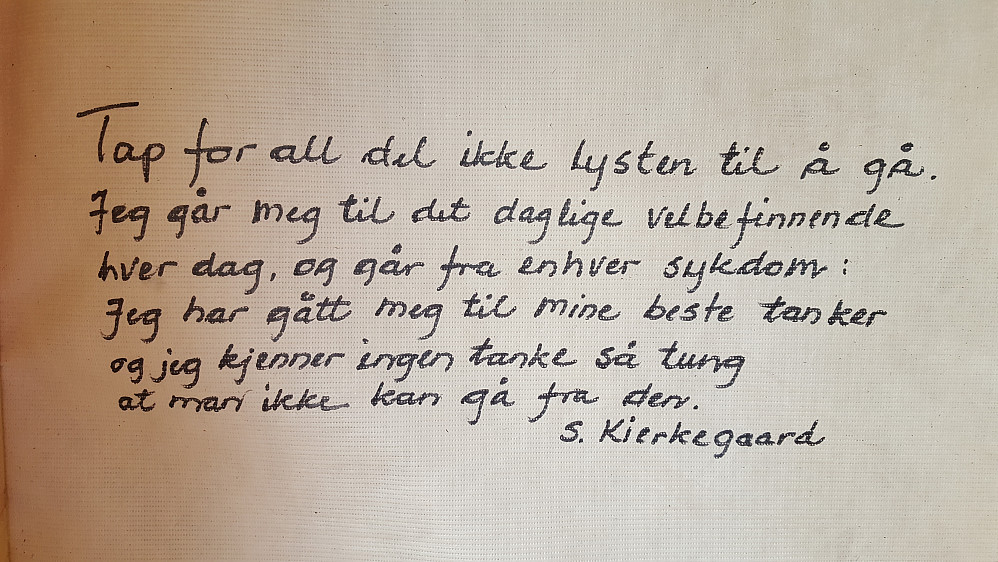 Tap for all del ikke lysten til å gå.
Jeg går meg til det daglige velbefinnende
hver dag, og går fra enhver sykdom:
Jeg har gått meg til mine beste tanker
og jeg kjenner ingen tanke så tung
at man ikke kan gå fra den.
S. Kierkegaard